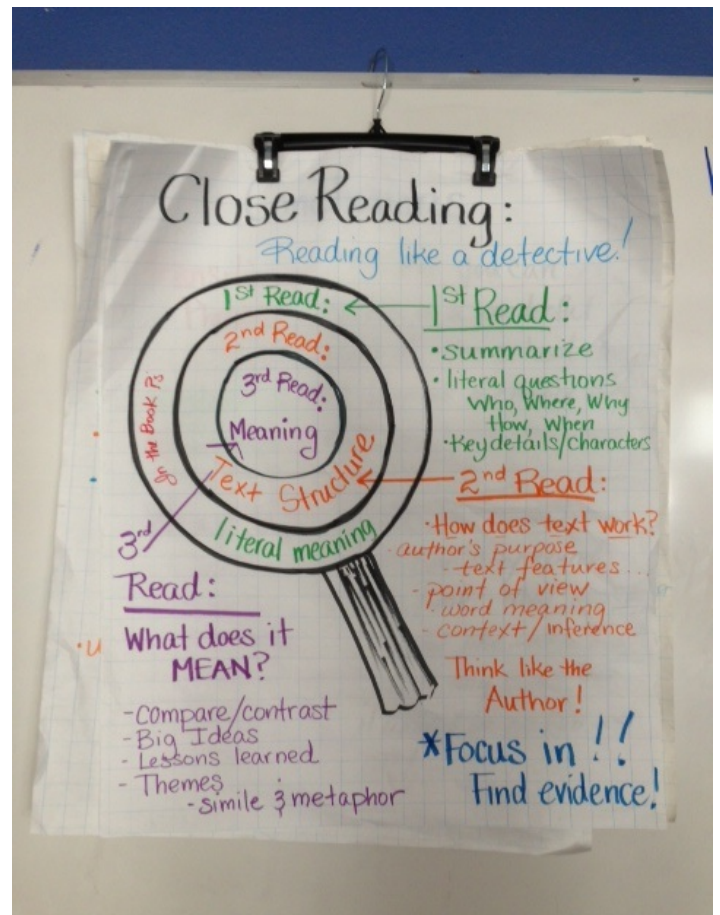 Close Reading:
Reading like a detective!
1st Read:
2nd Read:
3rd Read:
Meaning
Text Structure
literal meaning
In the Book
1st Read:
•summarize
•literal questions
Who, Where, Why
How, When
•Key details/characters
2nd Read:
•How does text work?
- author's purpose
- text features...
- point of view
- word meaning
- context/inference
Think like the
Author!
3rd
Read:
What does it
MEAN?
- Compare/contrast
- Big Ideas
- Lessons learned
- Themes
- simile & metaphor
*Focus in!!
Find evidence!